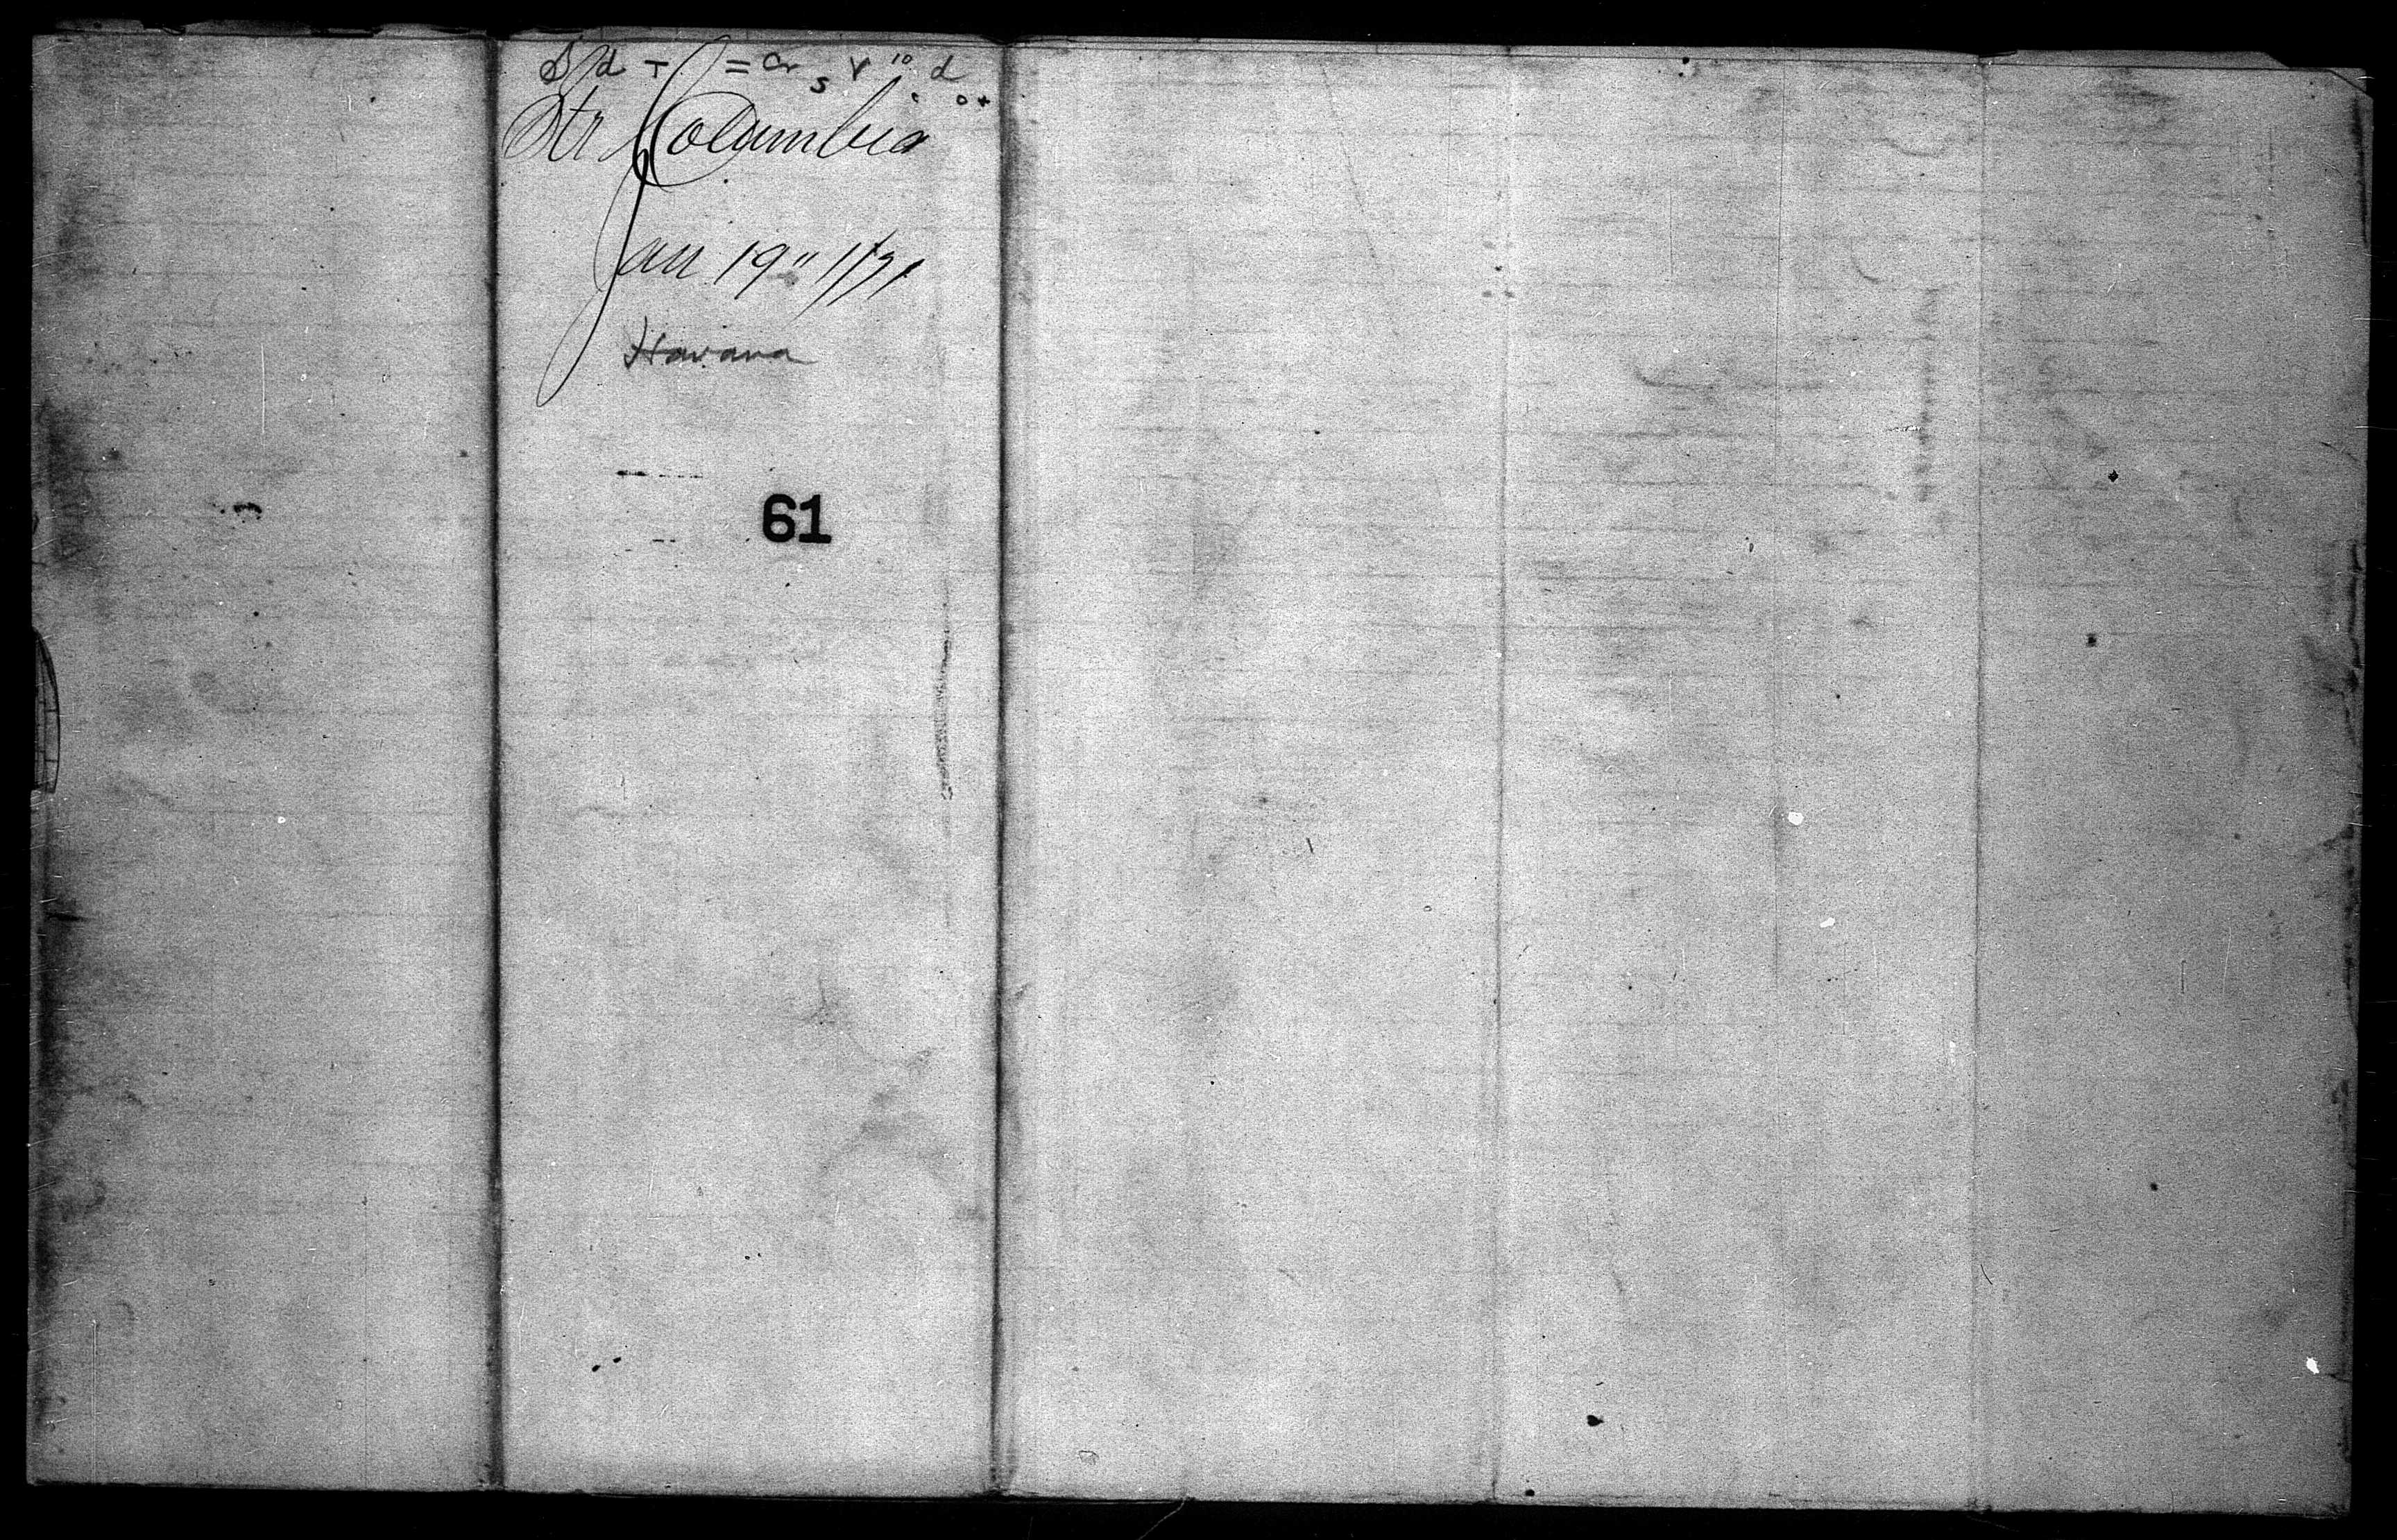 Str Columbia
Jan 19" 1871
Havana
61